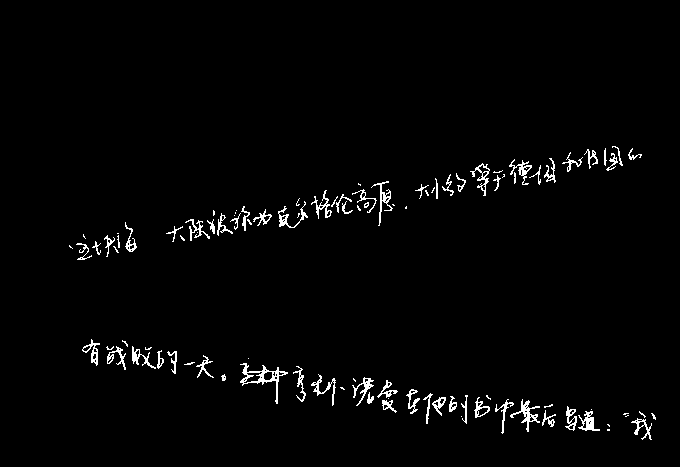 这块海 大陆被称为克尔格伦高原，大小约等于德国和法国的
有战败的一天。亨利·诺曼在他的书中最后写道：“我